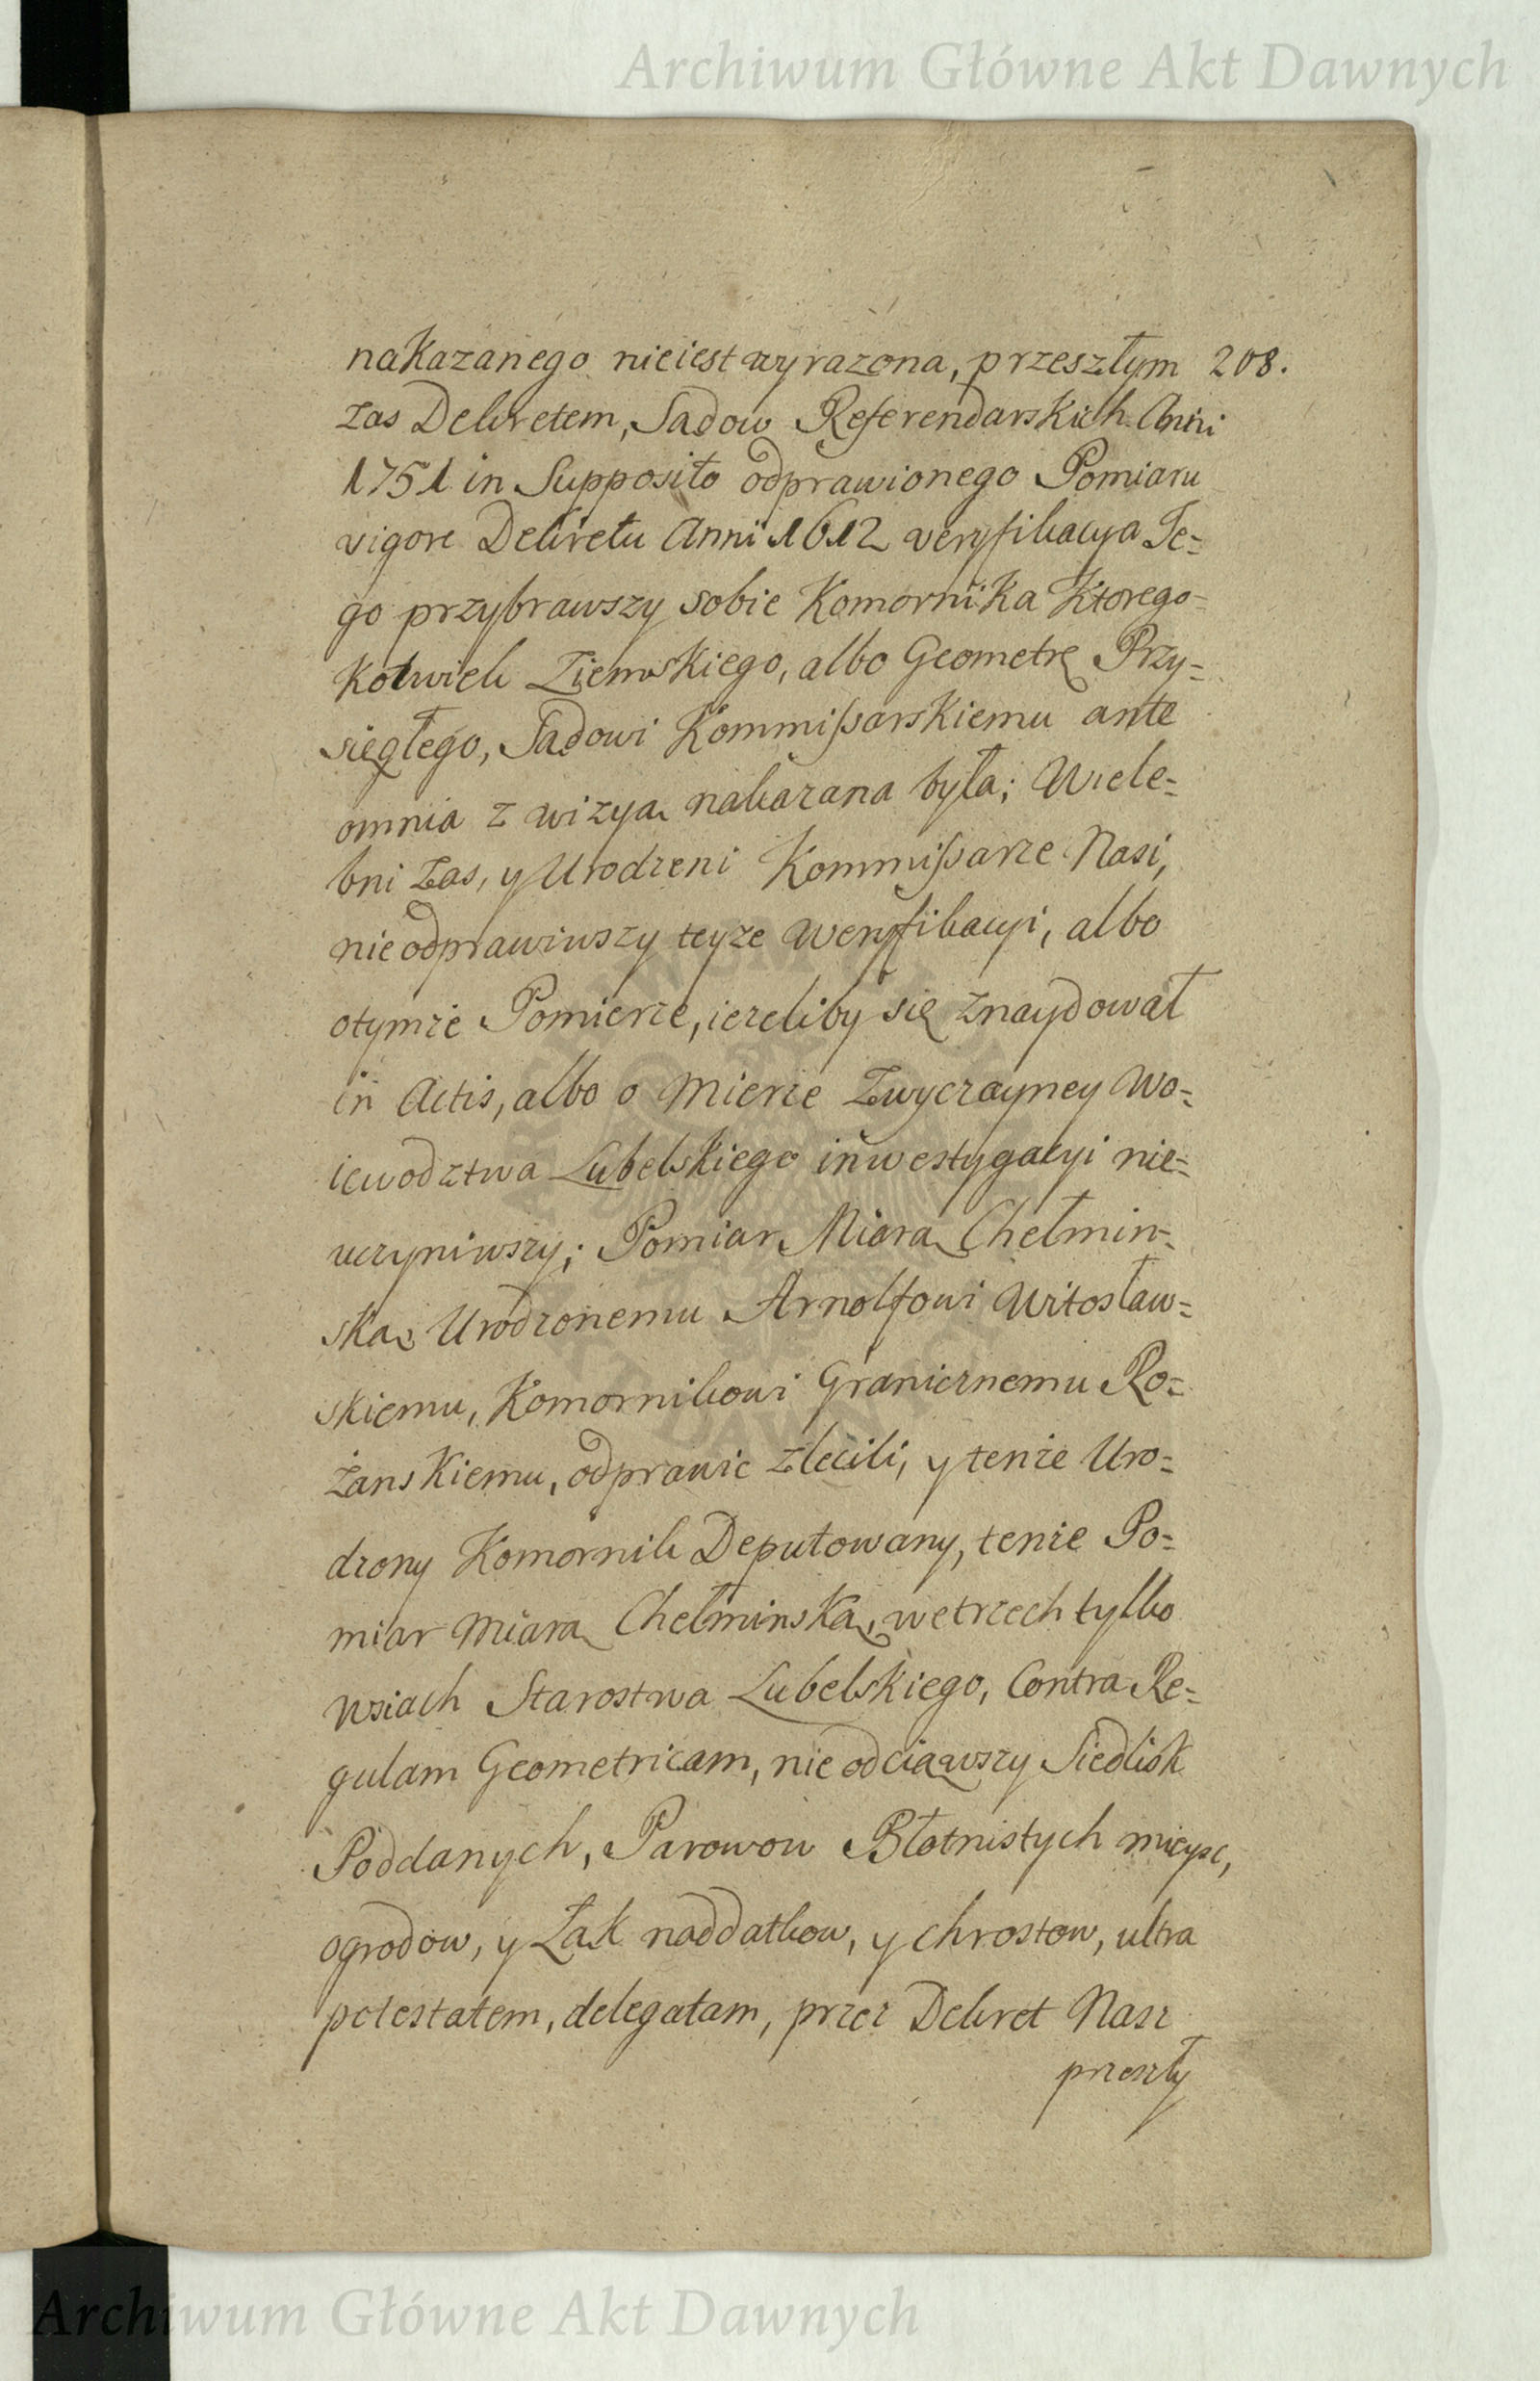 Archiwum Główne Akt Dawnych
nakazanego nieiest wyrazona, przeszłym 208.
zas Dekretem, Sadow Referendarskich Anni
1751 in Supposito odprawionego Pomiaru
vigore Dekretu Anni 1612 weryfikacya Te=
go przybrawszy sobie Komornika Ktorego=
kolwiek Ziemskiego, albo Geometrę Przy=
sięgłego, Sadowi Kommissarskiemu ante
omnia z wizyą nakazana była; Wiele=
bni zas, y Urodzeni Kommissarze Nasi,
nieodprawiwszy teyze weryfikacyi, albo
otymze Pomierze, iezeliby się znaydował
in Actis, albo o Mierze Zwyczayney Wo=
iewodztwa Lubelskiego inwestygacyi nie=
uczyniwszy; Pomiar Miarą Chełmin=
ską Urodzonemu Arnolfowi Witosław=
skiemu, Komornikowi Granicznemu Ro=
żanskiemu, odprawic zlecili, y tenże Uro=
dzony Komornik Deputowany, tenże Po=
miar Miarą Chełminską, wetrzech tylko
wsiach Starostwa Lubelskiego, Contra Re=
gulam Geometricam, nie odciąwszy Siedlisk
Poddanych, Parowow Błotnistych mieysc,
ogrodow, y Łąk naddatkow, y chrostow, ultra
potestatem, delegatam, przez Dekret Nasz
przeszły
Archiwum Główne Akt Dawnych